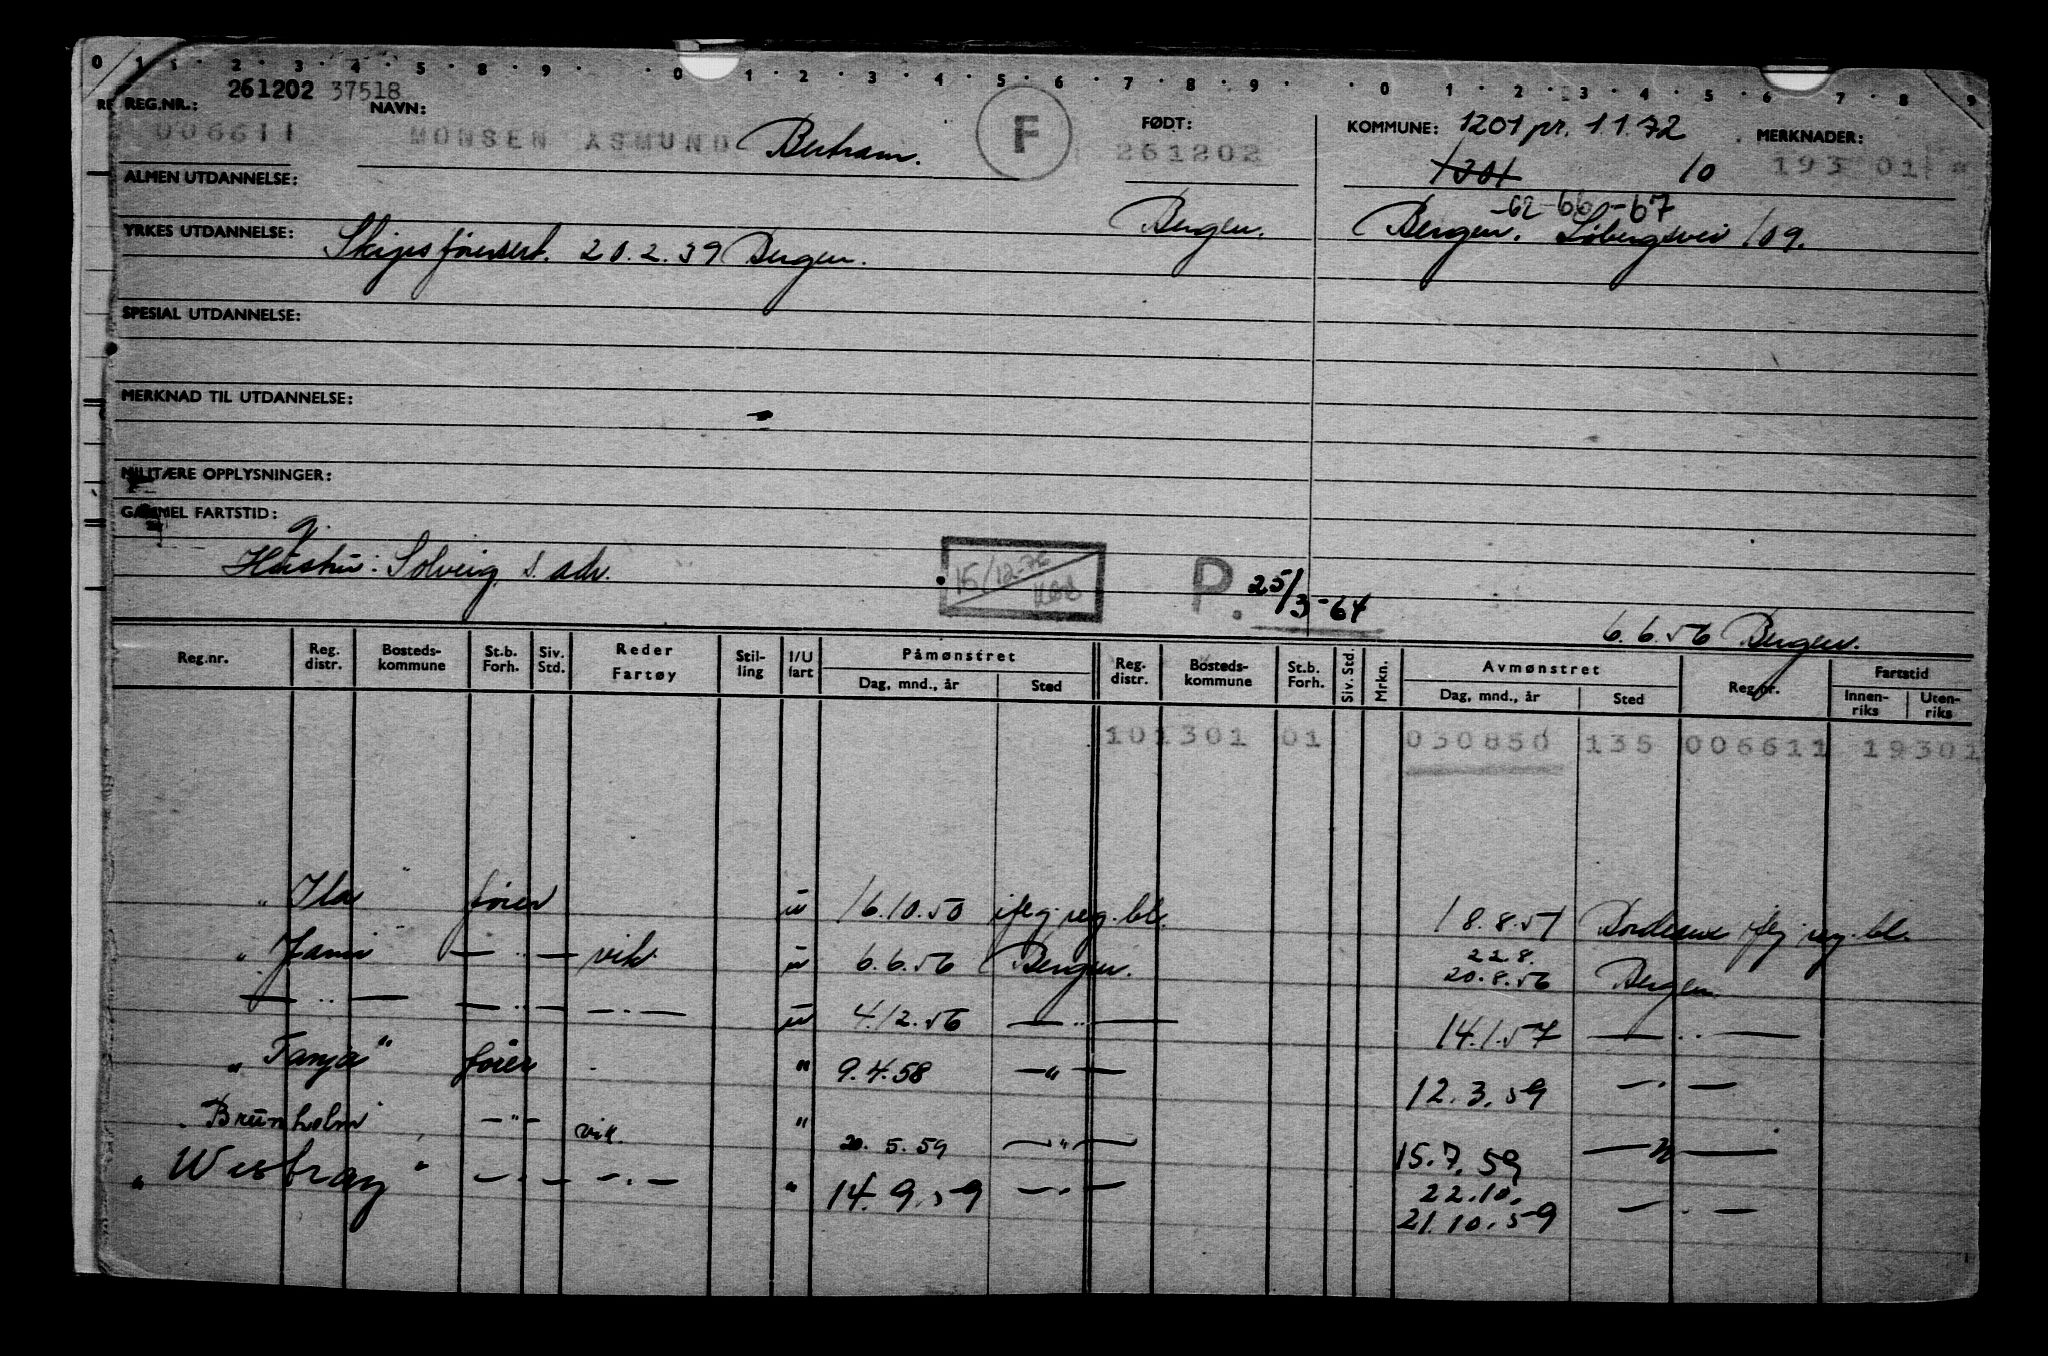 0 1 2 3 4 5 6 7 8 9 0 1 2 3 4 5 6 7 8 9 0 1 2 3 4 5 6 7 8 9
261202 37518
REG.NR.: NAVN: FØDT: KOMMUNE: 1201 pr. 1.1.72 MERKNADER:
006611 MONSEN ASMUND Bertram. F 261202 1301 10 193 01
ALMEN UTDANNELSE:
-62-66-67
YRKES UTDANNELSE: Skipsførersert. 20.2.39 Bergen. Bergen. Bergen. 109.
SPESIAL UTDANNELSE:
MERKNAD TIL UTDANNELSE:
MILITÆRE OPPLYSNINGER:
GAMMEL FARTSTID:
g.
Hustru: Solveig s. adr. 15/12-76 P. 25/3-64
6.6.56 Bergen.
Reg.nr. Reg. distr. Bosteds-kommune St.b. Forh. Siv. Std. Reder Fartøy Stil-ling I/U fart Påmønstret Dag, mnd., år Sted Reg. distr. Bosteds-kommune St.b. Forh. Siv. Std. Mrkn. Avmønstret Dag, mnd., år Sted Reg.nr. Fartstid Innen-riks Uten-riks
101301 01 030850 135 006611 19301
" Ila " fører u 16.10.50 iflg. reg. bl. 18.8.51 Bordeaux iflg reg. bl.
" Jamir — " — vik. u 6.6.56 Bergen. 22.8. 20.8.56 Bergen.
— " — — " — — " — u 4.12.56 — " — 14.1.57 — " —
" Tanja " fører " 9.4.58 — " — 12.3.59 — " —
" Brunholm " — " — vik. " 20.5.59 — " — 15.7.59 — " —
" Westray " — " — — " — " 14.9.59 — " — 22.10. 21.10.59 — " —